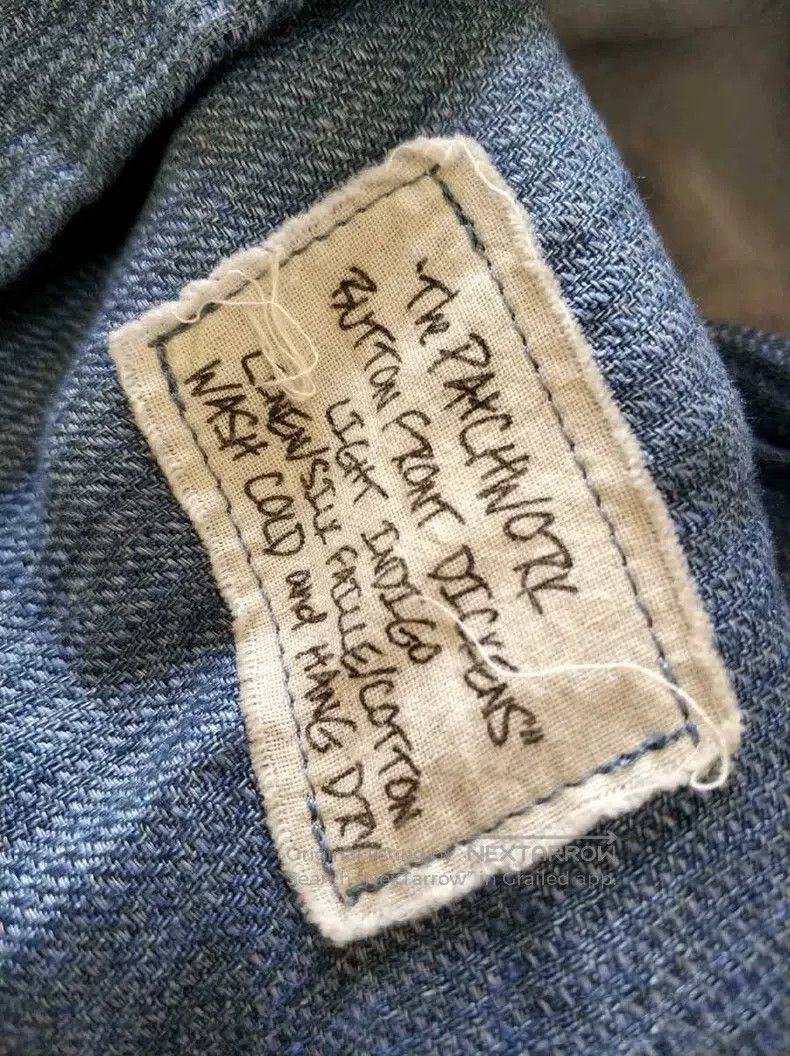 "The PAYCHWORK
BUTTON FRONT DICKENS"
LIGHT INDIGO
LINEN/SILK FAILLE/COTTON
WASH COLD and HANG DRY
NEXTARROW
Search "Nextarrow" in Grailed app.